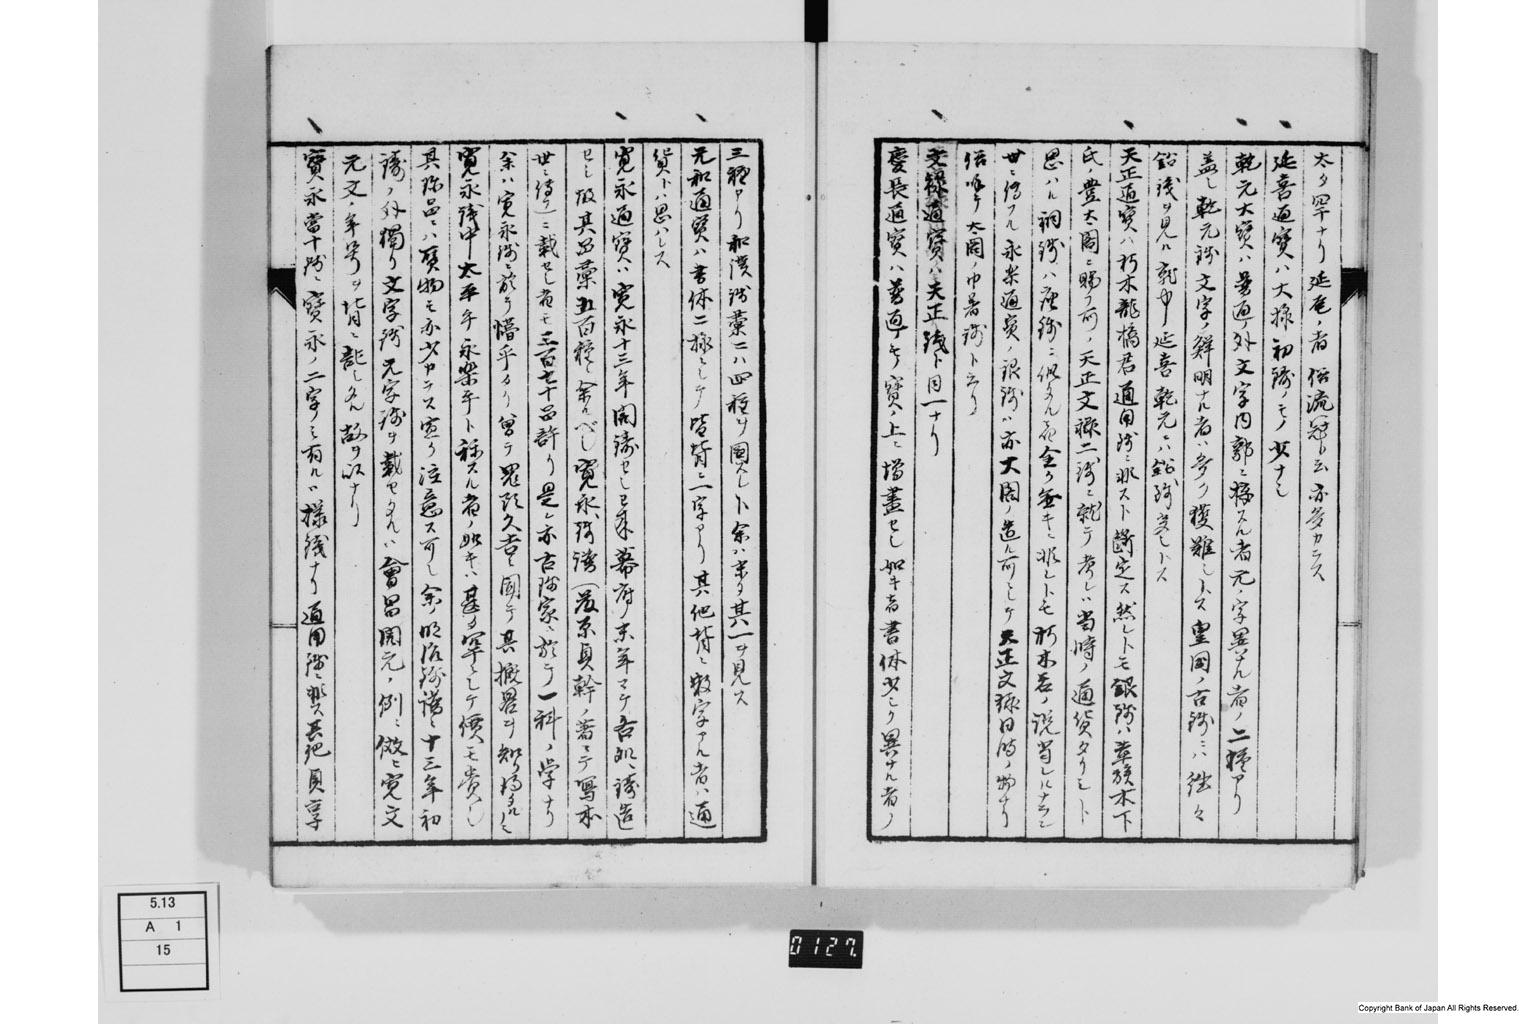 太タ罕ナリ延尾ノ者俗流冠ト云亦多カラス
延喜通寳ハ大様初鋳ノモノ少ナシ
乾元大寳ハ普通ノ外文字内郭ニ接スル者元ノ字異ナル者ノ二種アリ
蓋シ乾元銭文字ノ鮮明ナル者ハ尤獲難シトス皇国ノ古銭ニハ往々
鉛銭ヲ見ル就中延喜乾元ハ鉛銭多シトス
天正通寳ハ朽木龍橋君通用銭ニ非スト断定ス然レトモ銀銭ハ草孩木下
氏ノ豊太閤ニ賜フ所ノ天正文禄二銭ニ就テ考レハ当時ノ通貨タリシト
思ハル銅銭ハ
世ニ傳フル永楽通寳ノ銀銭ハ亦大閤ノ造ル所ニシテ天正文禄同時ノ物ナリ
俗呼テ太閤ノ中着銭ト云フ
文禄通寳ハ天正銭ト同一ナリ
慶長通寳ハ普通ノモノ寳ノ上ニ増畫セシ如キ者書体少シク異ナル者ノ
三種アリ和漢銭彙ニハ四種ヲ圖スレト余ハ未タ其一ヲ見ス
元和通寳ハ書体二様ニシテ皆背ニ一字アリ其他背ニ数字アル者ハ通
貨トハ思ハレス
寛永通寳ハ寛永十三年開鋳セシ已来幕府ノ末年マテ各処ニ鋳造
セシ故其品彙五百種ニ余ルベシ寛永銭譜(藤原貞幹ノ著ニテ写本
世ニ傳フ)ニ載セシ者モ三百七十品許リ是レ亦古銭家ニ於テ一科ノ学ナリ
余ハ寛永銭ニ於テ懵乎タリ曽テ
寛永銭中太平手永楽手ト称スル者ノ如キハ甚タ罕ニシテ價モ貴シ
其珍品ニハ贋物モ亦少カラス宜ク注意ス可シ余ノ明治銭譜ニ十三年初
鋳ノ外獨リ文字銭元字銭ヲ載セタルハ會昌開元ノ例ニ倣ヒ寛文
元文ノ年号ヲ背ニ記シタル故ヲ以ナリ
寳永當十銭ニ寳永ノ二字ノミ有ルハ様銭ナリ通用銭ニ非ス其他貞享
5.13
A 1
15
0127.
Copyright Bank of Japan All Rights Reserved.